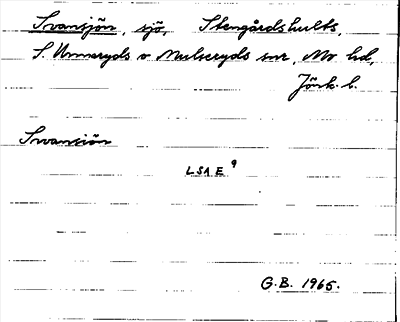 Svansjön, sjö, Stengårdshults,
S. Unnaryds o Mulseryds snr, Mo hd,
Jönk. l.
Svansiön
LSA E 9
G.B. 1965.